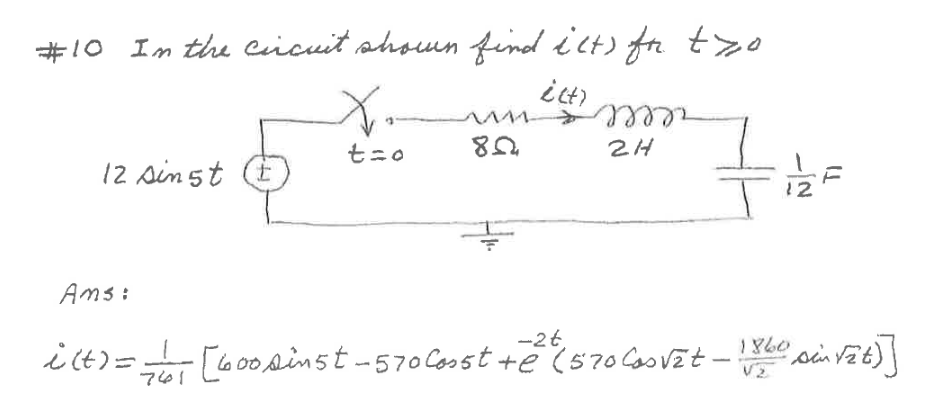 #10 In the circuit shown find i(t) for t≥0
i(t)
t=0
8Ω
2H
12 sin5t
±
1/12 F
Ans:
i(t) = 1/761 [600 sin5t - 570 Cos5t + e^-2t (570 Cos√2t - 1860/√2 sin√2t)]